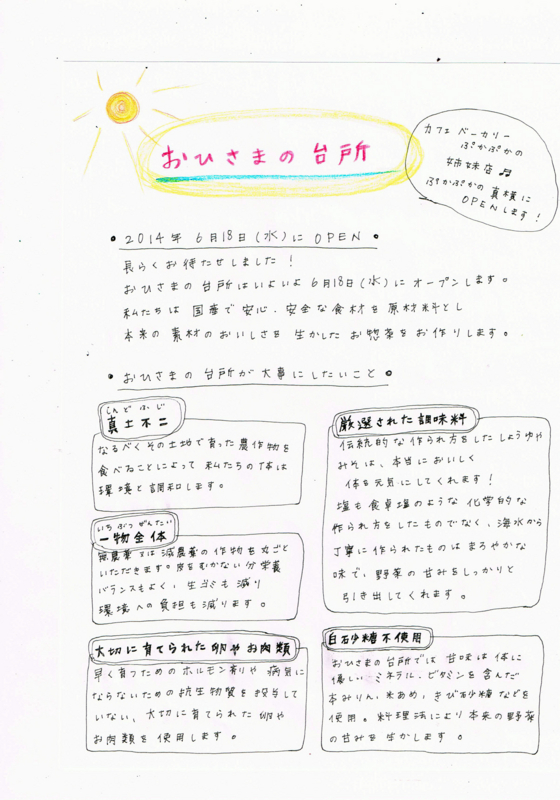 おひさまの台所
カフェ ベーカリー
ぷかぷかの
姉妹店♬
ぷかぷかの真横に
OPENします!
• 2014年6月18日(水)に OPEN •
長らくお待たせしました!
おひさまの台所はいよいよ6月18日(水)にオープンします。
私たちは国産で安心、安全な食材を原材料とし
本来の素材のおいしさを生かしたお惣菜をお作りします。
• おひさまの台所が大事にしたいこと •
しんどふじ
真土不二
なるべくその土地で育った農作物を
食べることによって私たちの体は
環境と調和します。
いちぶつぜんたい
一物全体
無農薬又は減農薬の作物を丸ごと
いただきます。皮をむかない分栄養
バランスもよく、生ゴミも減り
環境への負担も減ります。
大切に育てられた卵やお肉類
早く育つためのホルモン剤や病気に
ならないための抗生物質を投与して
いない、大切に育てられた卵や
お肉類を使用します。
厳選された調味料
伝統的な作られ方をしたしょうゆや
みそは、本当においしく
体を元気にしてくれます!
塩も食卓塩のような化学的な
作られ方をしたものでなく、海水から
丁寧に作られたものはまろやかな
味で、野菜の甘みをしっかりと
引き出してくれます。
白砂糖不使用
おひさまの台所では甘味は体に
優しいミネラル、ビタミンを含んだ
本みりん、米あめ、きび砂糖などを
使用。料理法により本来の野菜
の甘みを生かします。